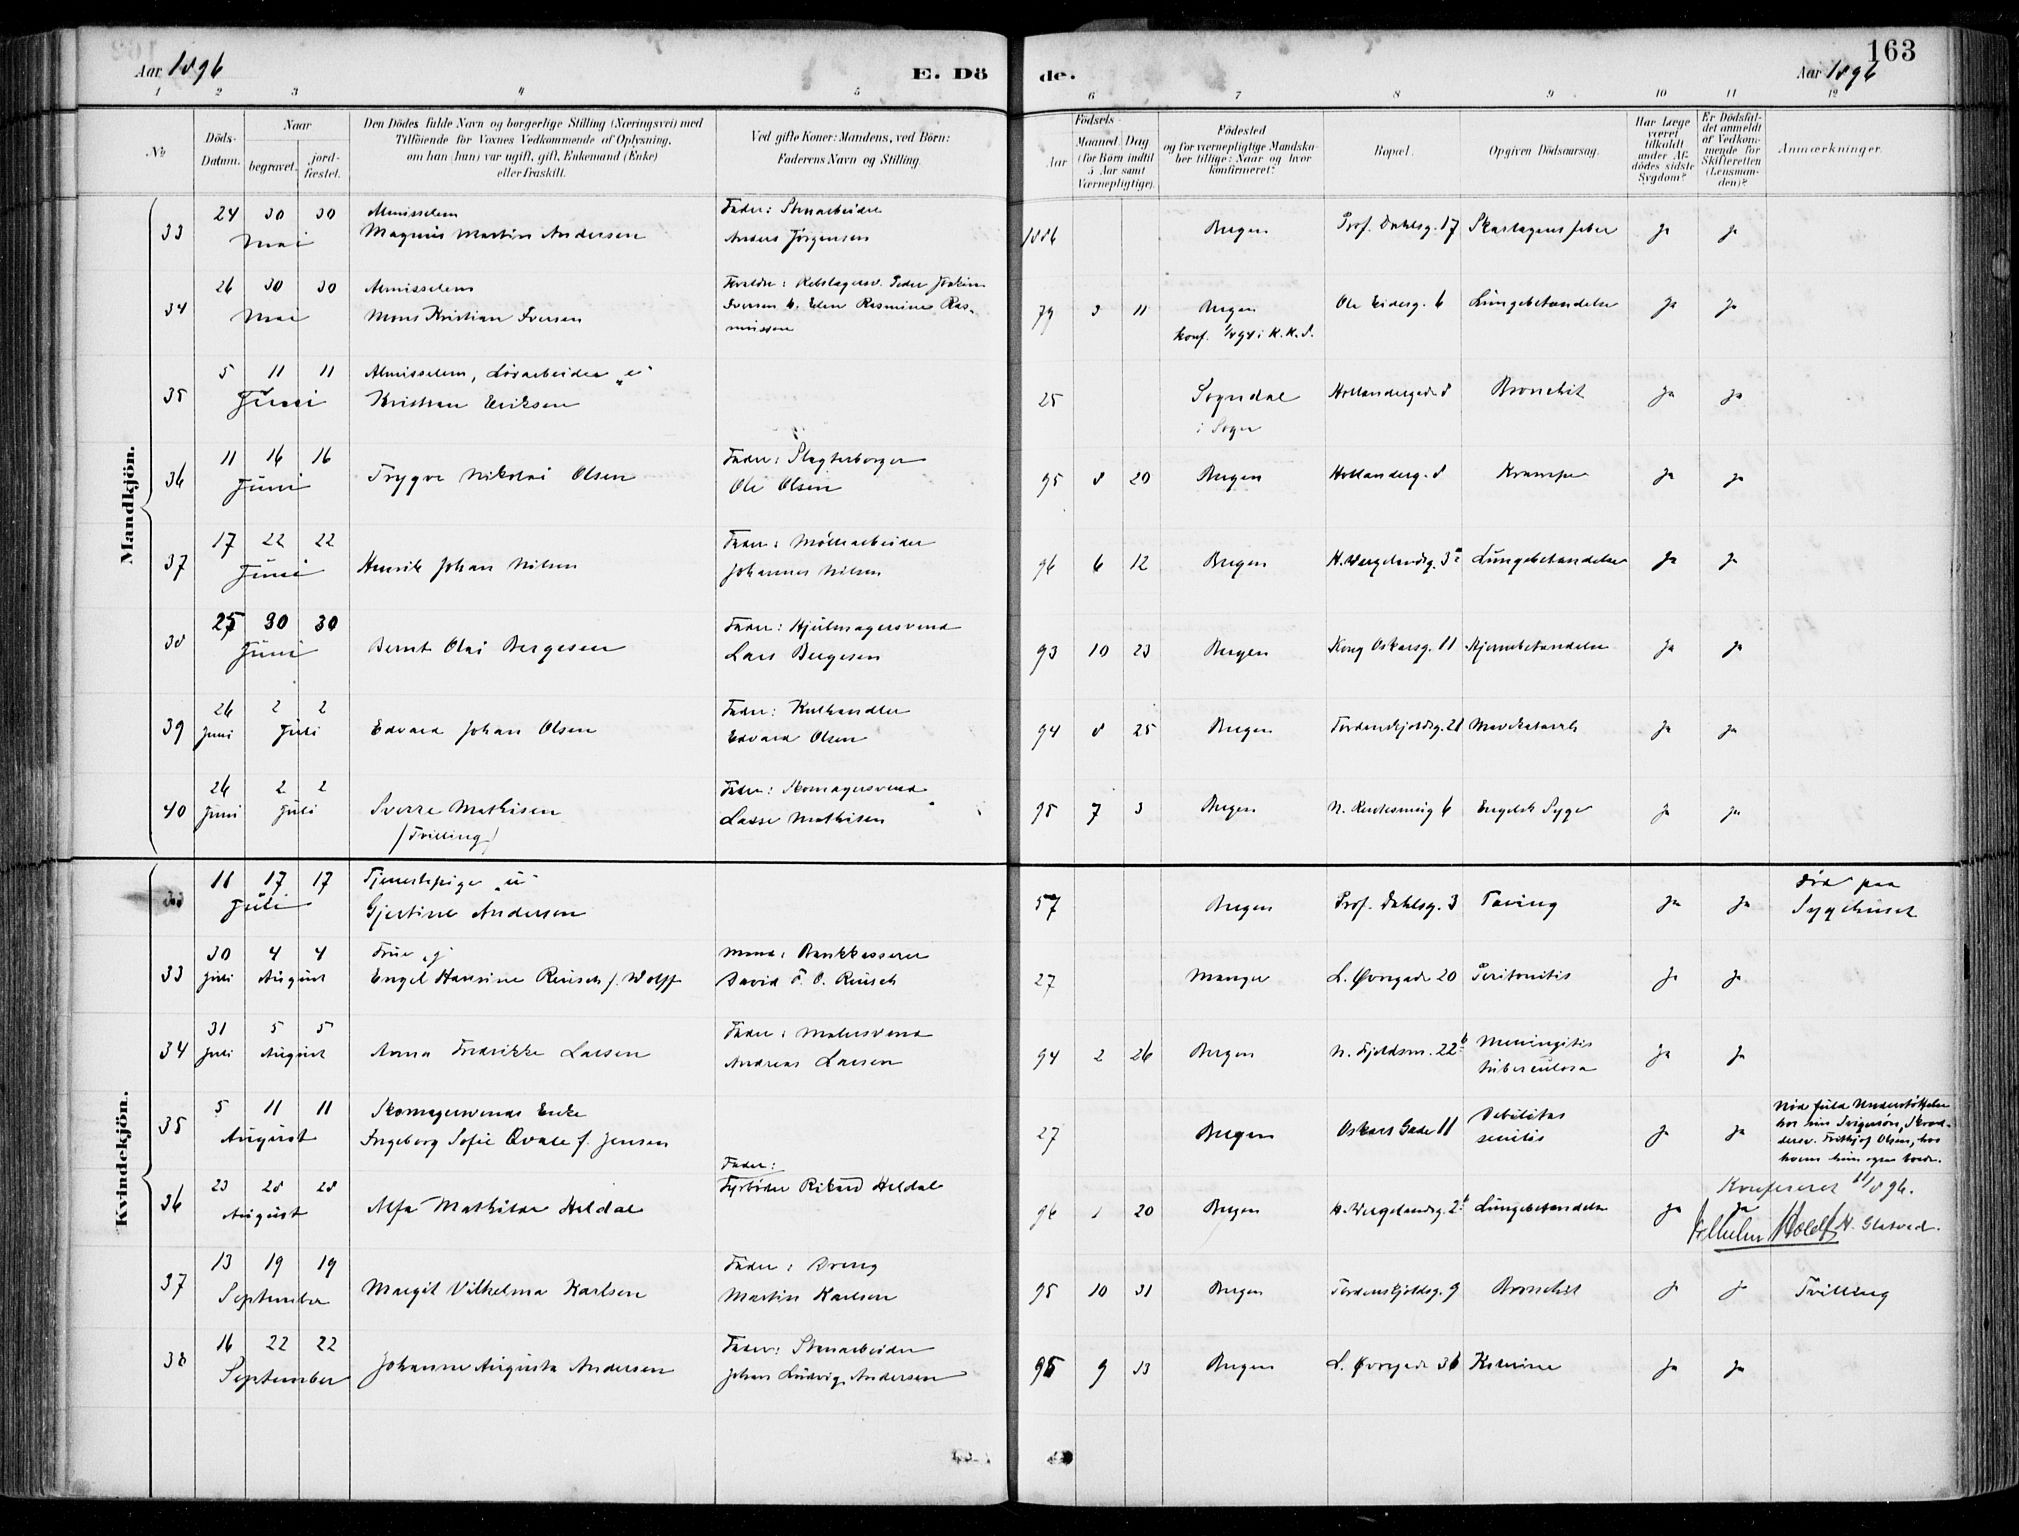 163
Aar 1896
E. Dö
de.
Aar 1896
1 2 3 4 5 6 7 8 9 10 11 12
No
Döds-
Datum.
Naar
begravet.
jord-
fæstet.
Den Dödes fulde Navn og borgerlige Stilling (Næringsvei) med
Tilföiende för Voxnes Vedkommende af Oplysning,
om han (hun) var ugift, gift, Enkemand (Enke)
eller fraskilt.
Ved gifte Koner: Mandens, ved Börn:
Faderens Navn og Stilling.
Födsels-
Aar
Maaned Dag
(for Børn indtil
5 Aar samt
Værnepligtige).
Födested
og for værnepligtige Mandska-
ber tillige: Naar og hvor
konfirmeret?
Bopæl.
Opgiven Dödsaarsag.
Har Læge
været
tilkaldt
under Af-
dödes sidste
Sygdom?
Er Dödsfal-
det anmeldt
af Vedkom-
mende for
Skifteretten
(Lensman-
den)?
Anmærkninger.
Mandkjön.
33 24 30 30 Mai
Almisselem
Magnus Martin Andersen
Fader: Stenarbeider
Anders Jørgensen
1886 Bergen Prof. Dahlsg. 17 Skarlagensfeber ja ja
34 26 30 30 Mai
Almisselem
Mons Kristian Iversen
Forældre: Rebslagersv. Peder Joakim
Iversen & Elen Rasmine Ras-
mussen
79 3 11 Bergen
Konf. 1/4 94 i K. K. S.
Ole Eidesg. 6 Lungebetændelse ja ja
35 5 11 11 Juni
Almisselem, Løsarbeider "u"
Kristian Eriksen
25 Sogndal
i Sogn
Hollendergade 8 Bronchit ja ja
36 11 16 16 Juni
Trygve Nikolai Olsen
Fader: Slagterborger
Ole Olsen
95 8 20 Bergen Hollenderg. 8 Krampe ja ja
37 17 22 22 Juni
Henrik Johan Nilsen
Fader: Møllearbeider
Johannes Nilsen
96 6 12 Bergen H. Wergelandsg. 3a Lungebetændelse ja ja
38 25 30 30 Juni
Bernt Olai Bergesen
Fader: Hjulmagersvend
Lars Bergesen
93 10 23 Bergen Kong Oskarsg. 11 Hjernebetændelse ja ja
39 26 Juni 2 2 Juli
Edvard Johan Olsen
Fader: Kulhandler
Edvard Olsen
94 8 25 Bergen Tordenskjoldsg. 21 Mavekatarrh ja ja
40 26 Juni 2 2 Juli
Sverre Mathisen
(Tvilling)
Fader: Skomagersvend
Lasse Mathisen
95 7 3 Bergen Engelsk Syge ja ja
Kvindekjön.
11 17 17 Juli
Tjenestepige "u"
Gjertine Andersen
57 Bergen Prof. Dahlsg. 3 Tæring ja ja
Død paa
Sygehuset
33 30 Juli 4 4 August
Frue, g
Engel Hansine Reusch f. Wolff
Mand: Bankkasserer
David F. O. Reusch
27 Manger L. Øvregade 20 Peritonitis ja ja
34 31 Juli 5 5 August
Anna Fredrikke Larsen
Fader: Malersvend
Andreas Larsen
94 2 26 Bergen N. Fjeldsm. 22b Meningitis
tuberculosa
ja ja
35 5 11 11 August
Skomagersvends Enke
Ingeborg Sofie Qvale f. Jensen
27 Bergen Oskars Gade 11 Debilitas
senilis
ja ja
Nød fuld Understøttelse
hos sin Svigersøn, Skræd-
dersv. Frithjof Olsen, hos
hvem hun ogsaa boede.
36 23 28 28 August
Alfa Mathilde Heldal
Fader:
Fyrbøder Rikard Heldal
96 1 20 Bergen H. Wergelandsg. 2b Lungebetændelse ja ja
Konfereret 11/8 96.
Vilhelm Holdt H. Sletved.
37 13 19 19 September
Margit Vilhelma Karlsen
Fader: Dreng
Martin Karlsen
95 10 31 Bergen Tordenskjoldsg. 9 Bronchit ja ja Tvilling
38 16 22 22 September
Johanne Augusta Andersen
Fader: Stenarbeider
Johan Ludvig Andersen
95 9 13 Bergen L. Øvregade 36 Kolerine ja ja